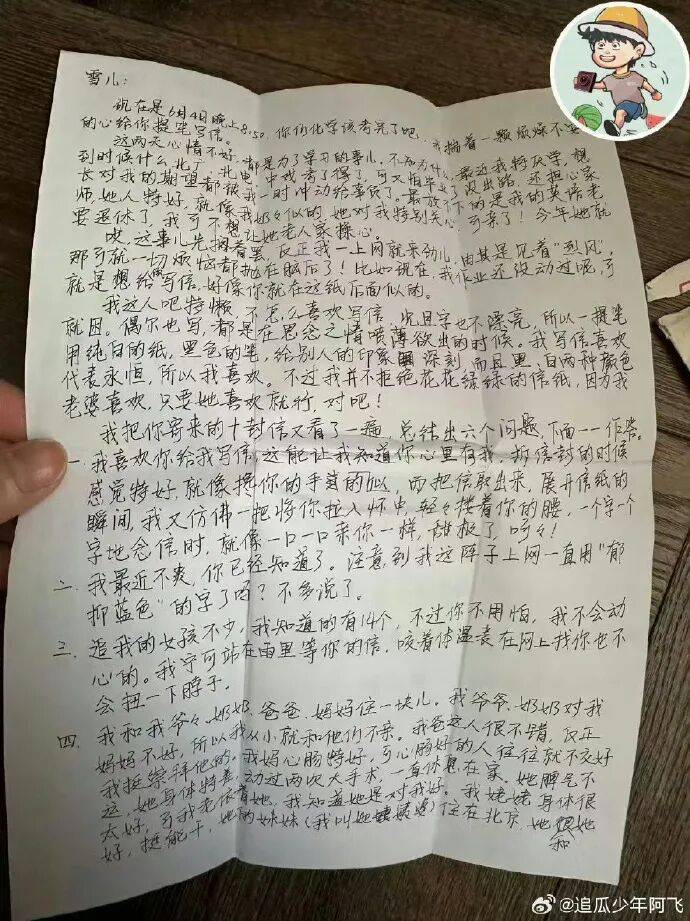 雪儿:
现在是6月4日晚上8:50.你们化学该考完了吧.我揣着一颗烦燥不安
的心给你提笔写信。
这两天心情不好,都是为了学习的事儿,不知为什么,最近我特厌学,想
到时候什么北广、北电、中戏考了得了,可又怕毕业了没出路,还担心家
长对我的期望都被我一时冲动给辜负了。最放不下的是我的英语老
师,她人特好,就像我奶々似的,她对我特别关心,可亲了!今年她就
要退休了,我可不想让她老人家操心。
哎,这事儿先搁着罢,反正我一上网就来劲儿,由其是见着“烈风”,
那可就一切烦恼都抛在脑后了!比如现在,我作业还没动过呢,可
就是想给你写信,好像你就在这纸后面似的。
我这人吧特懒,不怎么喜欢写信,况且字也不漂亮,所以一提笔
就困。偶尔也写,都是在思念之情喷薄欲出的时候。我写信喜欢
用纯白的纸,黑色的笔,给别人的印象深刻,而且黑、白两种颜色
代表永恒,所以我喜欢。不过我并不拒绝花花绿绿的信纸,因为我
老婆喜欢,只要她喜欢就行,对吧!
我把你寄来的十封信又看了一遍,总结出六个问题,下面一一作答。
一.我喜欢你给我写信,这能让我知道你心里有我,拆信封的时候
感觉特好,就像搀你的手道的似,而把信取出来,展开信纸的
瞬间,我又仿佛一把将你拉入怀中,轻々搂着你的腰,一字一个
字地念信时,就像一口一口亲你一样,甜极了,呵々!
二.我最近不爽,你已经知道了。注意到我这阵子上网一直用“郁
抑蓝色”的字了吗?不多说了。
三.追我的女孩不少,我知道的有14个,不过你不用怕,我不会动
心的。我宁可站在雨里等你的信,咬着体温表在网上找你也不
会扭一下脖子。
四.我和我爷々、奶奶、爸爸、妈妈住一块儿。我爷爷、奶奶对我
妈妈不好,所以我从小就和他们不亲。我爸这人很不错,反正
我挺崇拜他的。我妈心肠特好,可心肠好的人往往就不交好
运,她身体特差,动过两次大手术,一直休息在家。她脾气不
太好,可我老依着她,我知道她是对我好。我姥姥身体很
好,挺能干,她的妹妹(我叫她姨姥)住在北京,她和她
@追瓜少年阿飞